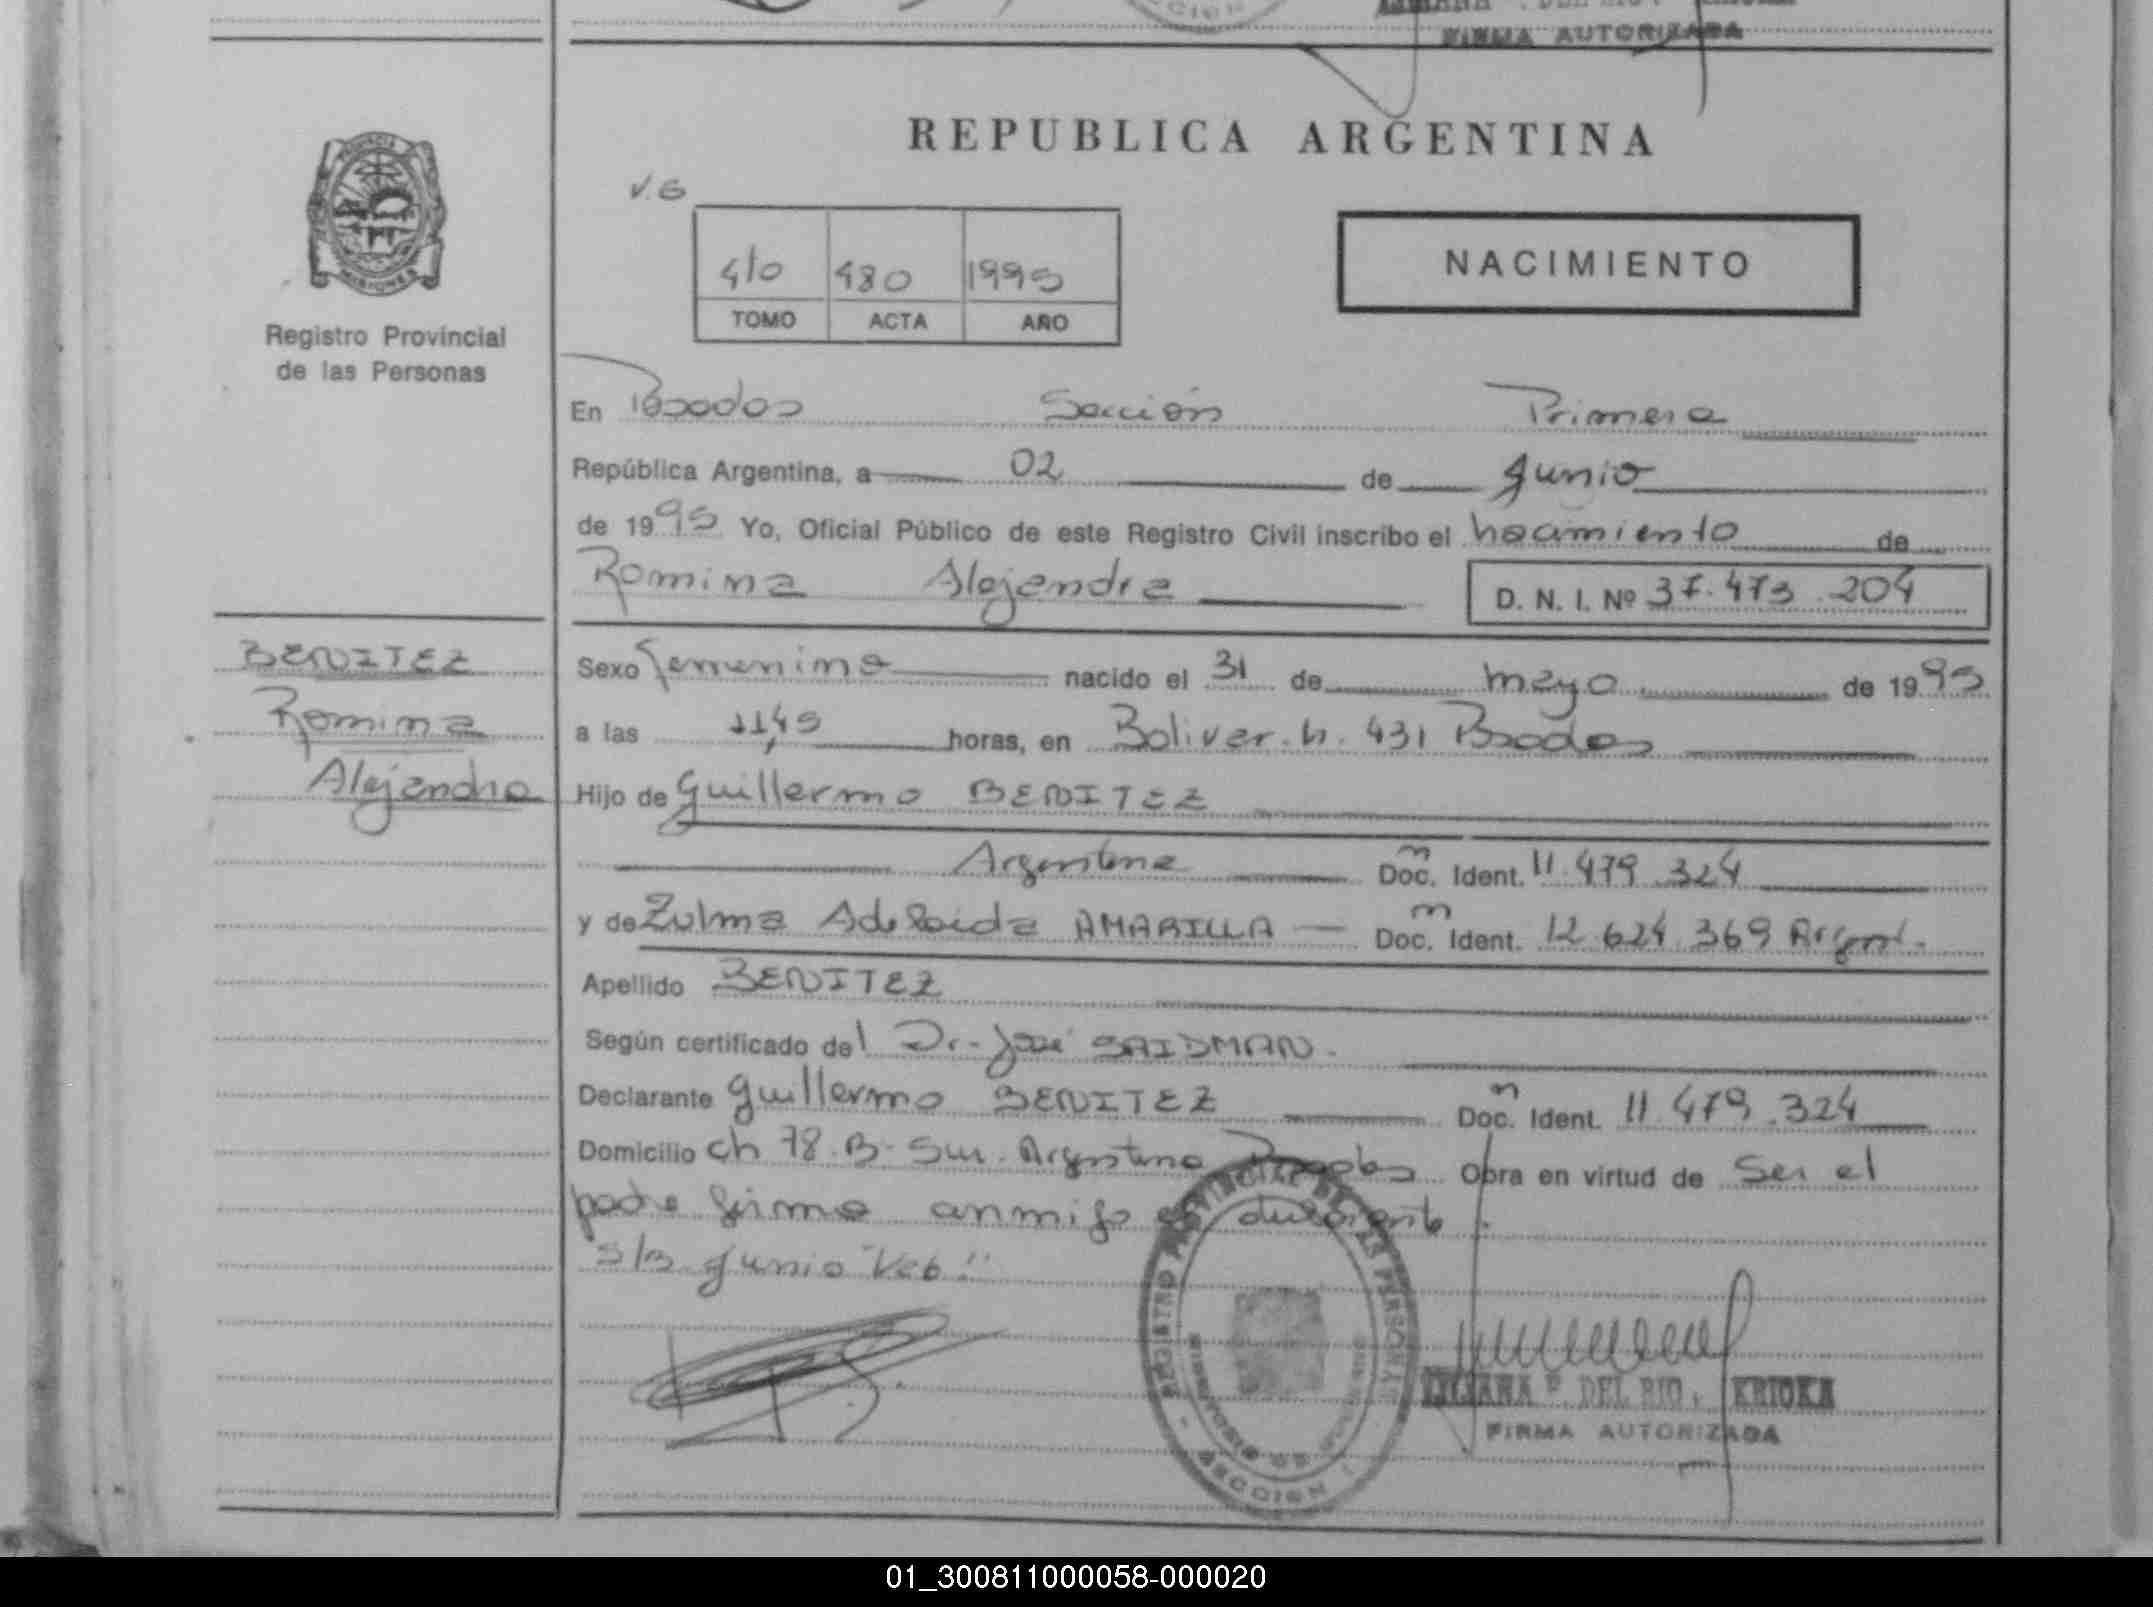 FIRMA AUTORIZADA
REPUBLICA ARGENTINA
V. G
NACIMIENTO
4to 480 1995
TOMO ACTA AÑO
PROVINCIA
MISIONES
Registro Provincial
de las Personas
En Posadas Sección Primera
República Argentina, a 02 de Junio
de 1995 Yo, Oficial Público de este Registro Civil inscribo el nacimiento de
Romina Alejandra D. N. I. Nº 37.473.204
BENITEZ
Romina
Alejandra
Sexo femenino nacido el 31 de mayo de 1995
a las 11,45 horas, en Bolivar n. 431 Posadas
Hijo de Guillermo BENITEZ
Argentino Doc. Ident. 11.479.324
y de Zulma Adelaida AMARILLA Doc. Ident. 12.624.369 Argent.
Apellido BENITEZ
Según certificado del Dr. José SAIDMAN.
Declarante Guillermo BENITEZ Doc. Ident. 11.479.324
Domicilio Ch 78. B. Sur. Argentino Posadas Obra en virtud de ser el
padre firma conmigo
s/b Junio
REGISTRO PROVINCIAL DE LAS PERSONAS
MINISTERIO DE GOBIERNO
SECCION
LILIANA P. DEL RIO KRIOKA
FIRMA AUTORIZADA
01_300811000058-000020